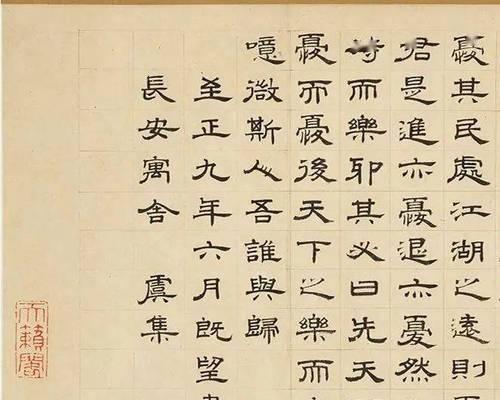 憂其民處江湖之遠則
君是進亦憂退亦憂然
時而樂耶其必曰先天
憂而憂後天下之樂而
噫微斯人吾誰與歸
至正九年六月既望書
長安寓舍 虞集
天籟閣